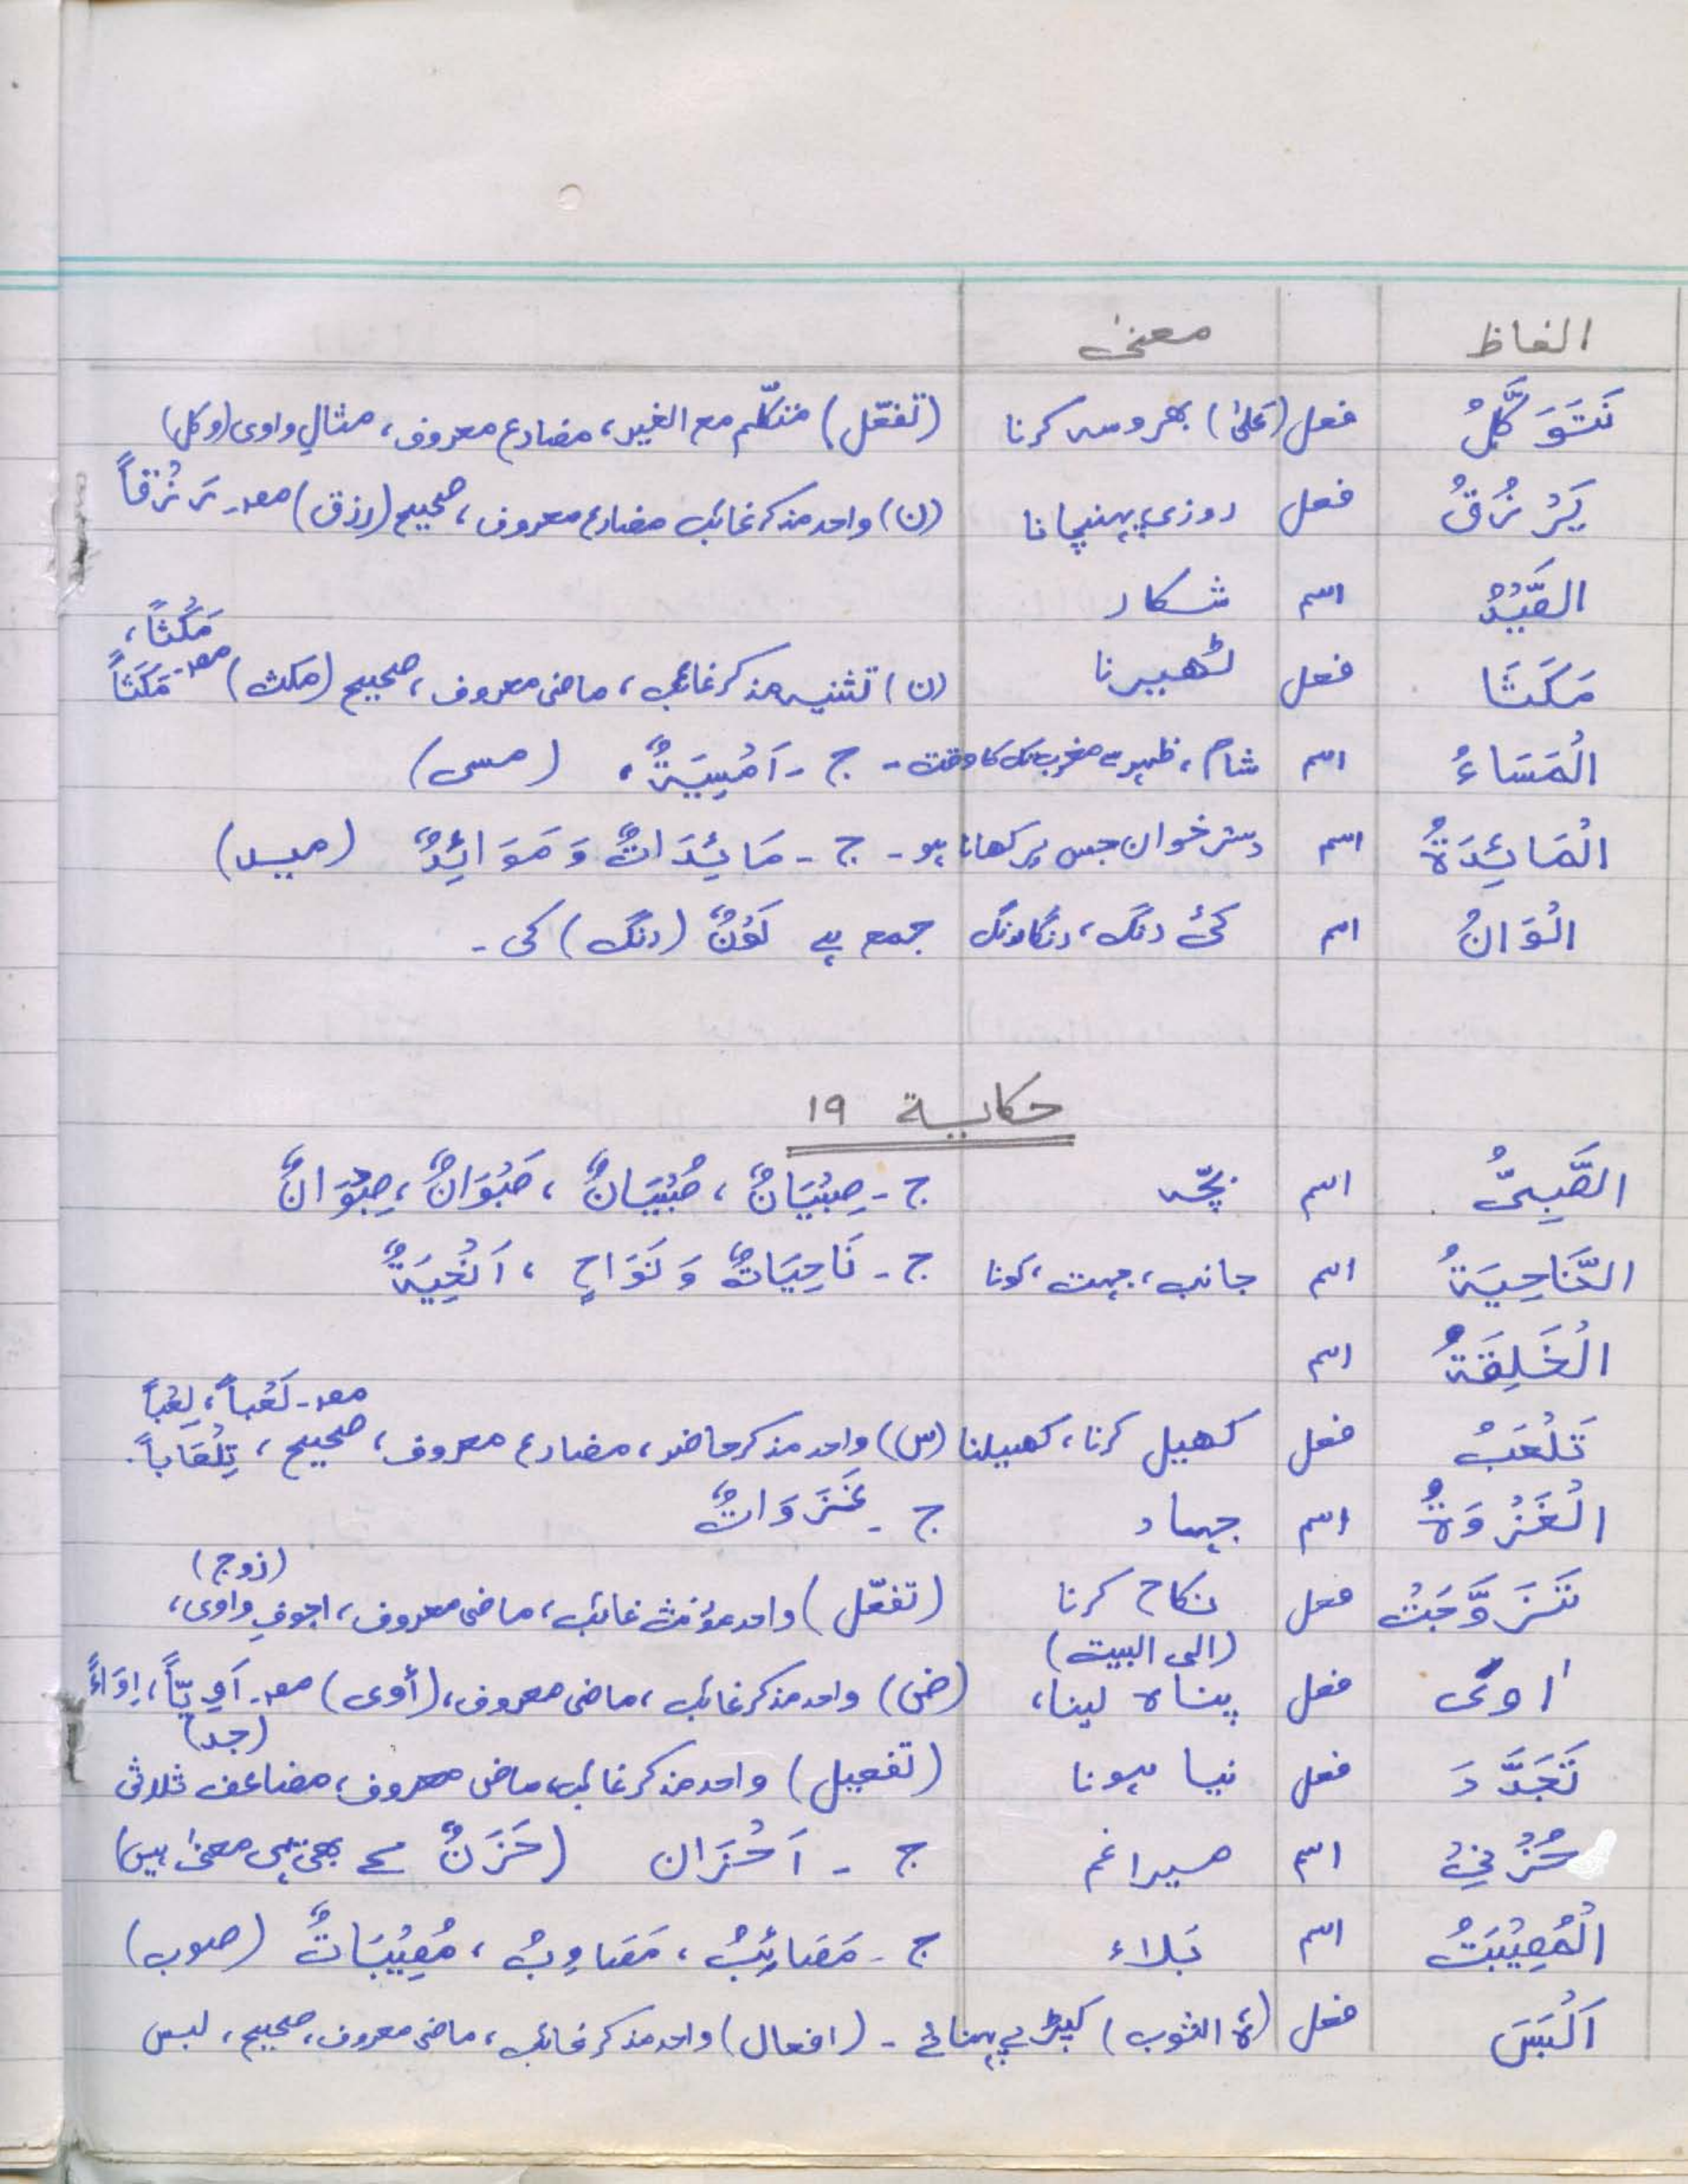 الفاظ معنیٰ
نَتَوَكَّلُ فعل (عَلیٰ) بھروسہ کرنا (تفعّل) متکلّم مع الغیر، مضارع معروف، مثالِ واوی (وکل)
يَرْزُقُ فعل روزی پہنچانا (ن) واحد مذکر غائب مضارع معروف، صحیح (رزق) مصدر۔ رَزْقاً
الصَّيْدُ اسم شکار
مَكَثَا فعل ٹھیرنا (ن) تثنیہ مذکر غائب، ماضی معروف، صحیح (مکث) مصدر۔ مَكْثاً، مَكَثاً
الْمَسَاءُ اسم شام، ظہر سے مغرب تک کا وقت۔ ج ۔ اَمْسِيَةٌ، (مسی)
الْمَائِدَةُ اسم دسترخوان جس پر کھانا ہو۔ ج ۔ مَائِدَاتٌ وَ مَوَائِدٌ (مید)
الْوَانُ اسم کئ رنگ، رنگا رنگ جمع ہے لَوْنٌ (رنگ) کی۔
حکایۃ ۱۹
الصَّبِيُّ اسم بچّہ ج ۔ صِبْيَانٌ، صُبْيَانٌ، صَبْوَانٌ، صِبْوَانٌ
النَّاحِيَةُ اسم جانب، جہت، کونا ج ۔ نَاحِيَاتٌ وَ نَوَاحٍ، اَنْحِيَةٌ
الْخَلِقَةُ اسم
تَلْعَبُ فعل کھیل کرنا، کھیلنا (س) واحد مذکر حاضر، مضارع معروف، صحیح، مصدر۔ لَعْباً، لِعْباً تِلْعَاباً۔
الْغَزْوَةُ اسم جہاد ج ۔ غَزَوَاتٌ
تَزَوَّجَتْ فعل نکاح کرنا (تفعّل) واحد مؤنث غائب، ماضی معروف، اجوفِ واوی، (زوج)
اٰوىٰ فعل (الی البیت) پناہ لینا، (ض) واحد مذکر غائب، ماضی معروف، (أوی) مصدر۔ اَوِيّاً، اِوَاءً
تَجَدَّدَ فعل نیا ہونا (تفعیل) واحد مذکر غائب، ماضی معروف، مضاعف ثلاثی (جد)
حُزْنِيْ اسم میرا غم ج ۔ اَحْزَان (حَزَنٌ کے بھی یہی معنیٰ ہیں)
الْمُصِيْبَتُ اسم بَلاء ج ۔ مَصَائِبُ، مَصَاوِبُ، مُصِيْبَاتٌ (صوب)
اَلْبَسَ فعل (ہٗ الثوب) کپڑے پہنائے ۔ (افعال) واحد مذکر غائب، ماضی معروف، صحیح، لبس